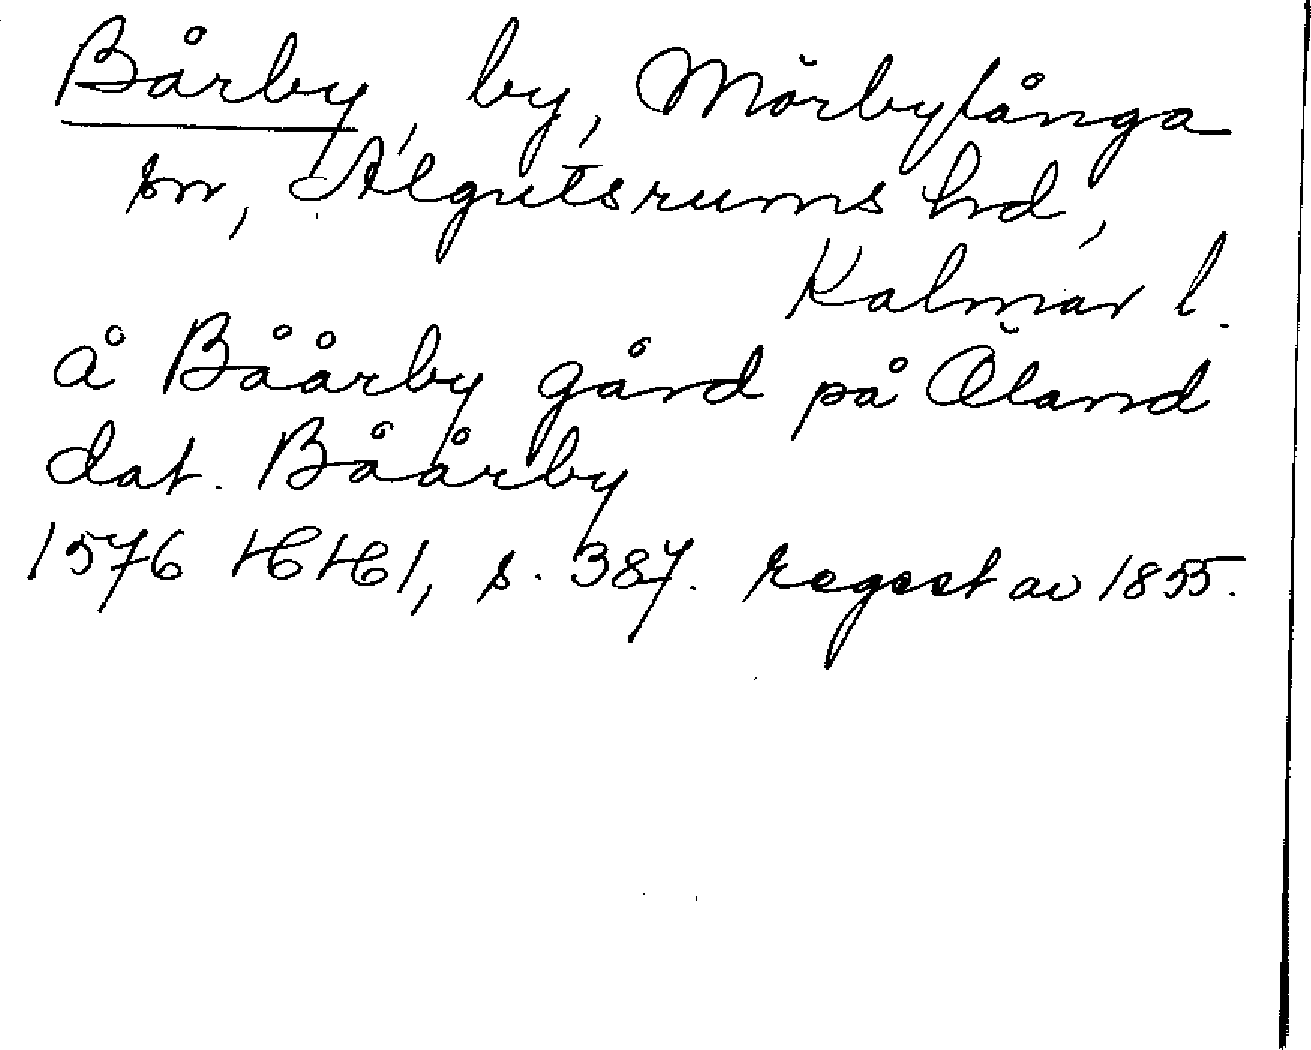 Bårby, by, Mörbylånga
sn, Algutsrums hd,
Kalmar l.
å Båårby gård på Öland
dat. Båårby
1576 HH 1, s. 387. regest av 1855.